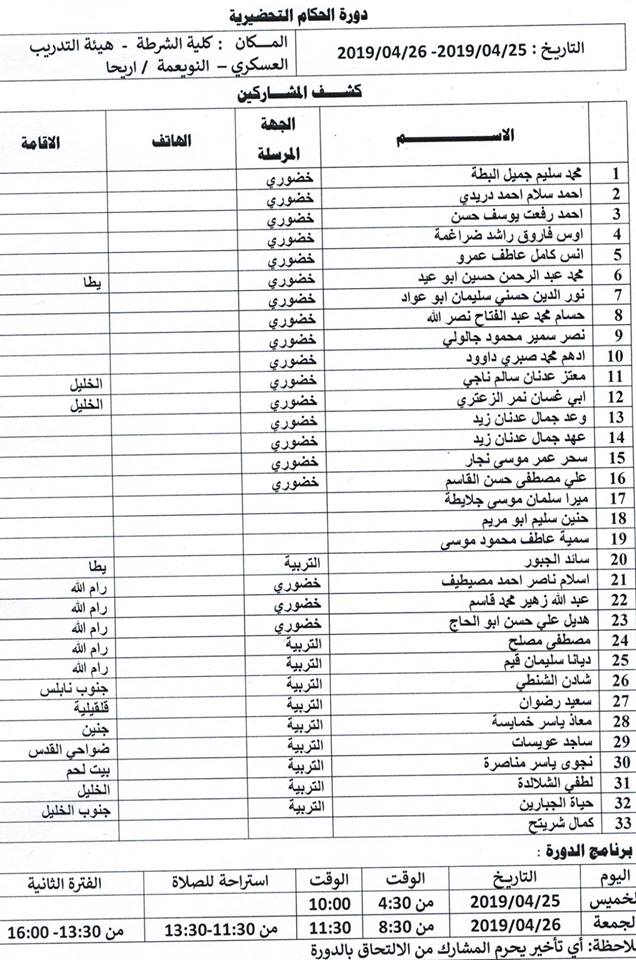 دورة الحكام التحضيرية
التاريخ : 2019/04/25- 2019/04/26 المـــكان : كلية الشرطة - هيئة التدريب
العسكري – النويعمة / اريحا
كشف المشاركين
الاســـــــــم الجهة المرسلة الهاتف الاقامة
1 محمد سليم جميل البطة خضوري
2 احمد سلام احمد دريدي خضوري
3 احمد رفعت يوسف حسن خضوري
4 اوس فاروق راشد ضراغمة خضوري
5 انس كامل عاطف عمرو خضوري
6 محمد عبد الرحمن حسين ابو عيد خضوري يطا
7 نور الدين حسني سليمان ابو عواد خضوري
8 حسام محمد عبد الفتاح نصر الله خضوري
9 نصر سمير محمود جالولي خضوري
10 ادهم محمد صبري داوود خضوري
11 معتز عدنان سالم ناجي خضوري الخليل
12 ابي غسان نمر الزعتري خضوري الخليل
13 وعد جمال عدنان زيد خضوري
14 عهد جمال عدنان زيد خضوري
15 سحر عمر موسى نجار خضوري
16 علي مصطفى حسن القاسم خضوري
17 ميرا سلمان موسى جلايطة
18 حنين سليم ابو مريم
19 سمية عاطف محمود موسى
20 ساند الجبور التربية يطا
21 اسلام ناصر احمد مصيطيف خضوري رام الله
22 عبد الله زهير محمد قاسم خضوري رام الله
23 هديل علي حسن ابو الحاج خضوري رام الله
24 مصطفى مصلح التربية رام الله
25 ديانا سليمان قيم التربية رام الله
26 شادن الشنطي التربية جنوب نابلس
27 سعيد رضوان التربية قلقيلية
28 معاذ ياسر خمايسة التربية جنين
29 ساجد عويسات التربية ضواحي القدس
30 نجوى ياسر مناصرة التربية بيت لحم
31 لطفي الشلالدة التربية الخليل
32 حياة الجبارين التربية جنوب الخليل
33 كمال شريتح
برنامج الدورة :
اليوم التاريخ الوقت الوقت استراحة للصلاة الفترة الثانية
لخميس 2019/04/25 من 4:30 10:00
لجمعة 2019/04/26 من 8:30 11:30 من 11:30-13:30 من 13:30- 16:00
لاحظة: أي تأخير يحرم المشارك من الالتحاق بالدورة